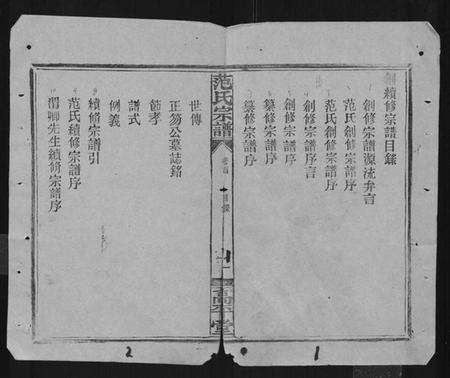 創續修宗譜目錄
創修宗譜源流弁言
范氏創修宗譜序
范氏創修宗譜序
創修宗譜序言
創修宗譜序
纂修宗譜序
纂修宗譜序
范氏宗譜
卷首
目錄
一
堂
世傳
正笏公墓誌銘
節孝
譜式
例義
續修宗譜引
范氏續修宗譜序
渭卿先生續修宗譜序
1
2